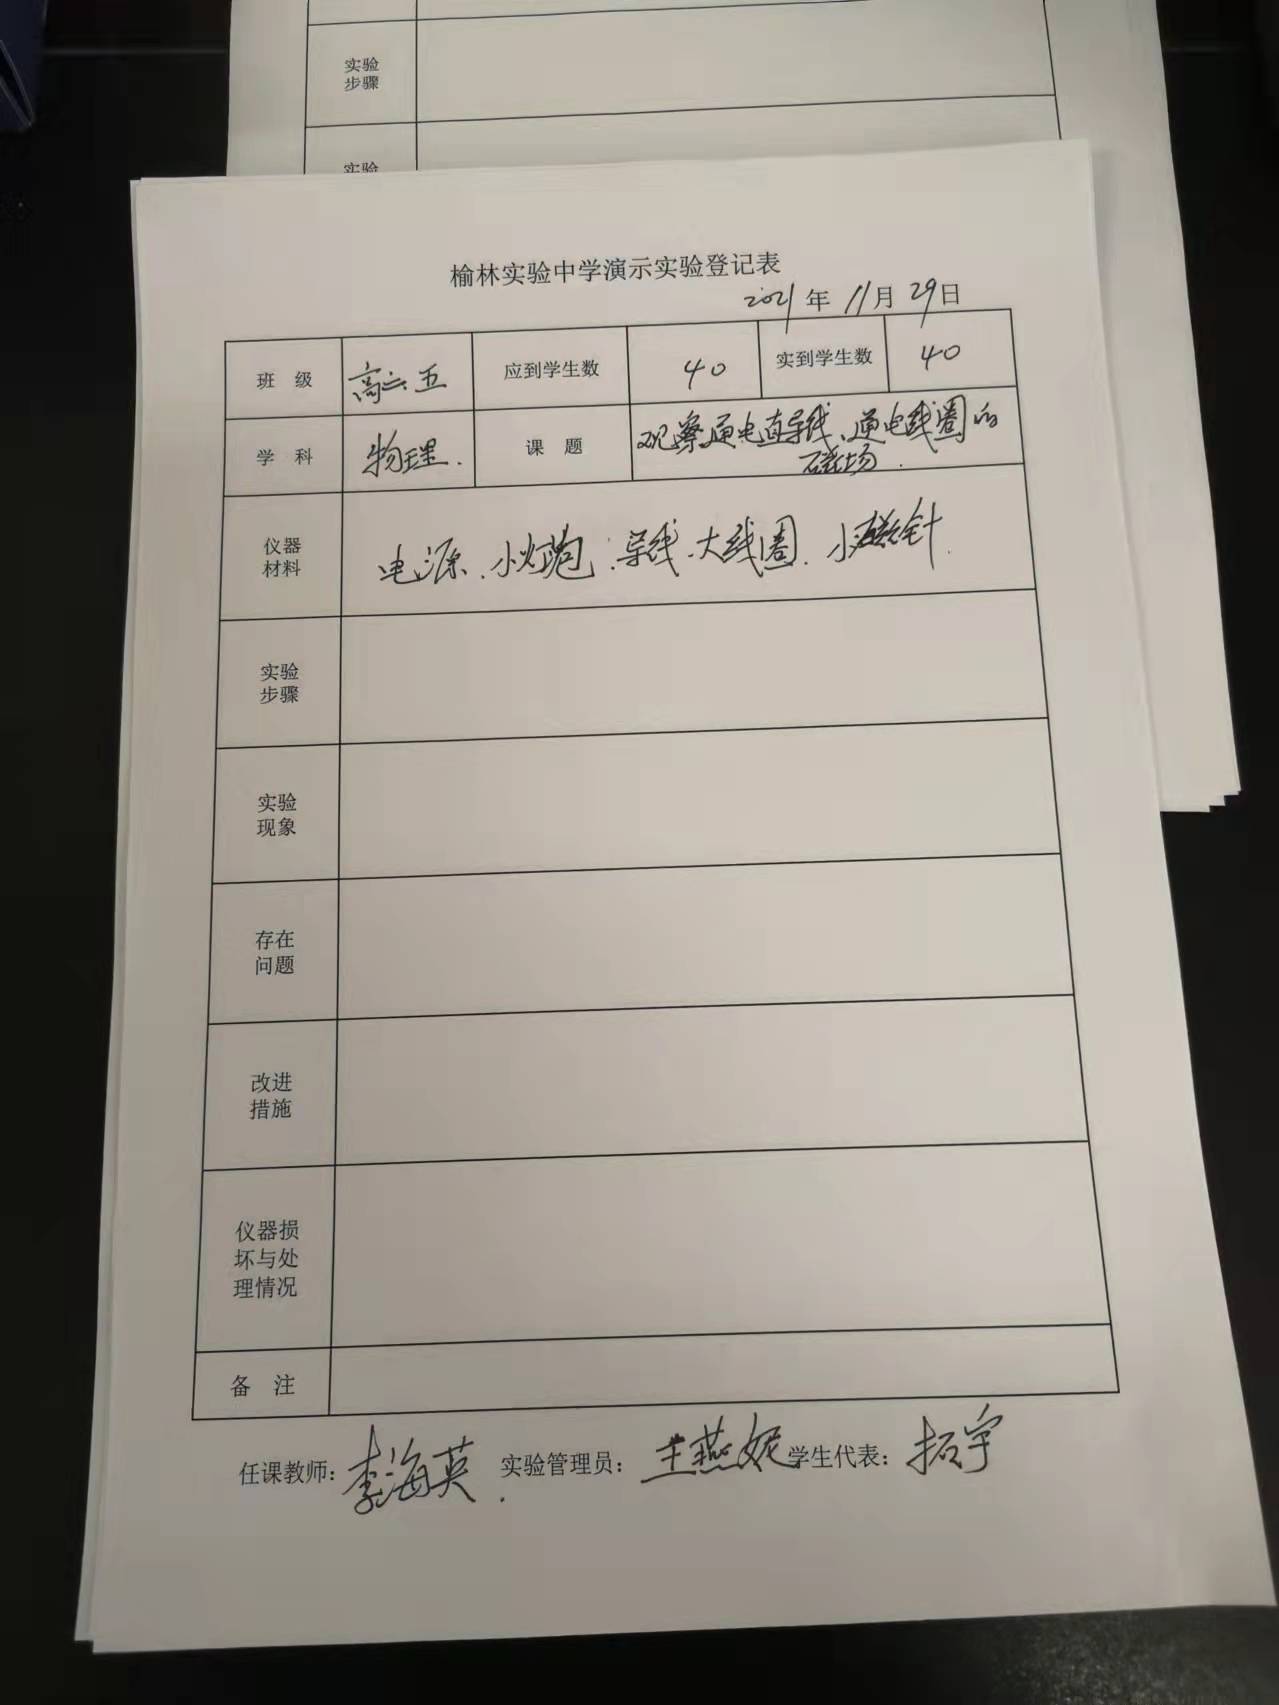 实验
步骤
实验
榆林实验中学演示实验登记表
2021年 11月 29日
班 级 高二五 应到学生数 40 实到学生数 40
学 科 物理. 课 题 观察通电直导线、通电线圈的
磁场.
仪器
材料
电源、小灯泡、导线、大线圈、小磁针
实验
步骤
实验
现象
存在
问题
改进
措施
仪器损
坏与处
理情况
备 注
任课教师: 李海英 实验管理员: 王燕妮 学生代表: